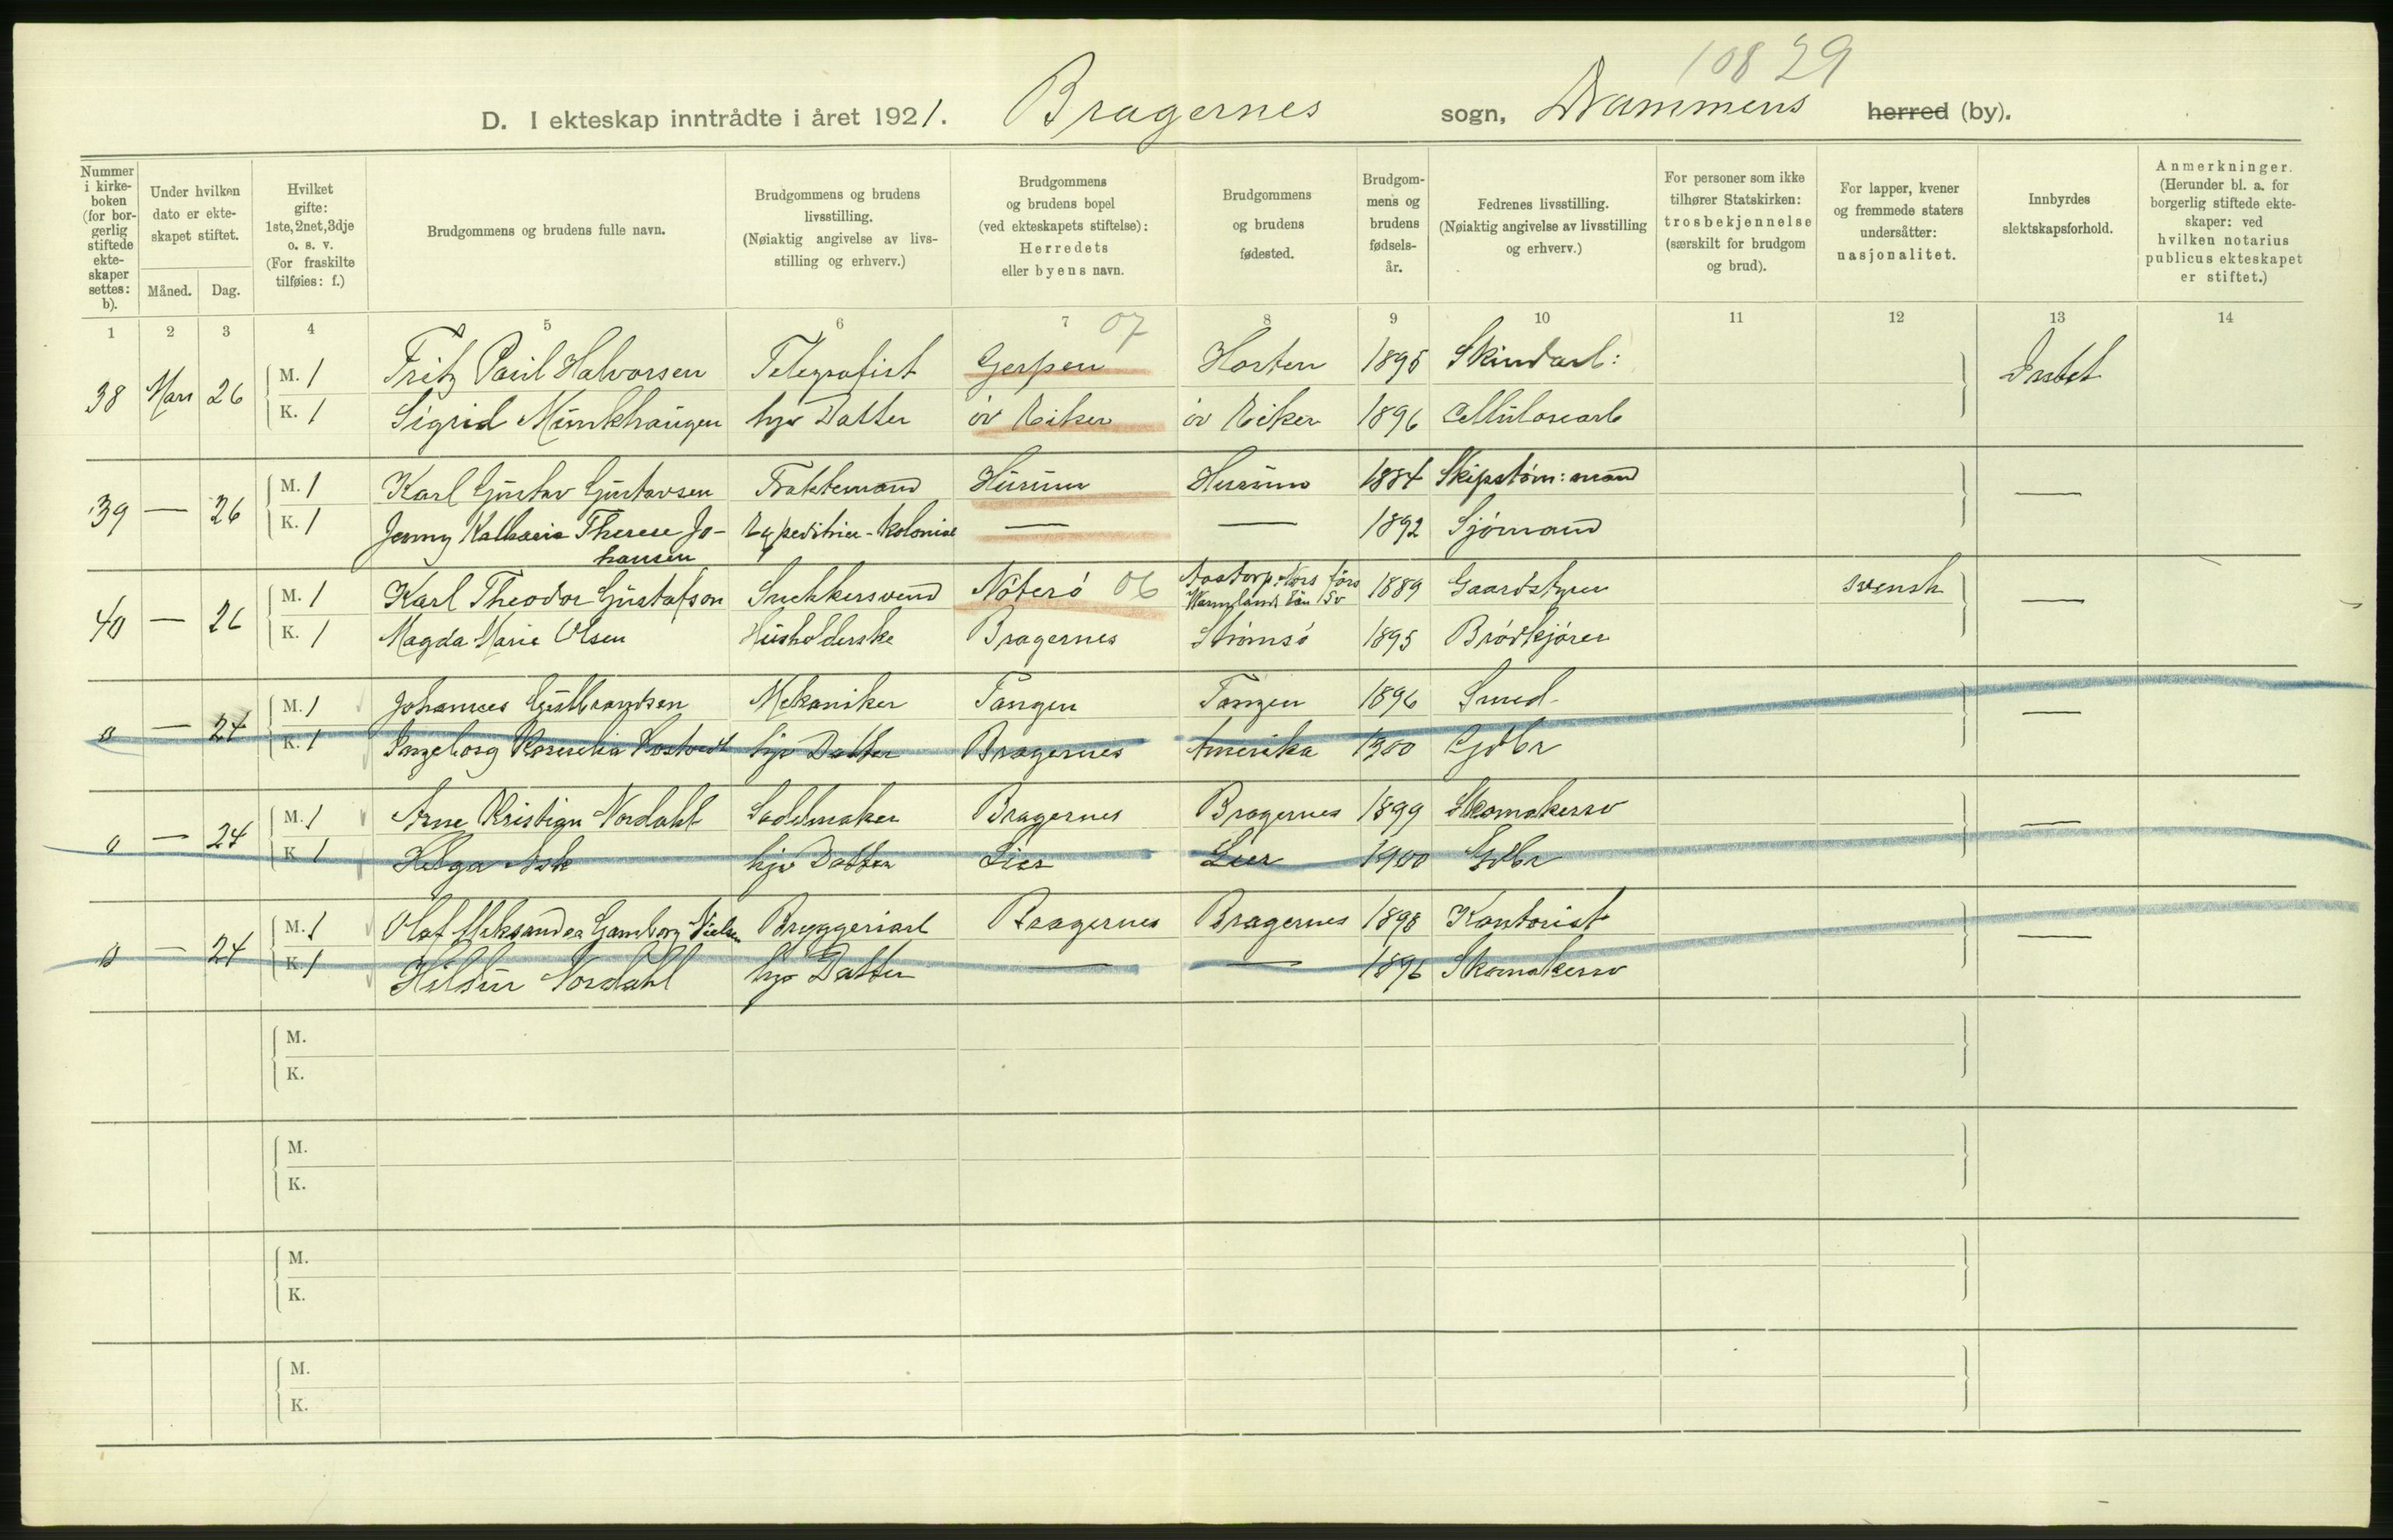 108 29
D. I ekteskap inntrådte i året 1921. Bragernes sogn, Drammens herred (by).
Nummer i kirke-boken (for bor-gerlig stiftede ekte-skaper settes: b).
Under hvilken dato er ekte-skapet stiftet.
Måned. Dag.
Hvilket gifte: 1ste, 2net, 3dje o. s. v. (For fraskilte tilføies: f.)
Brudgommens og brudens fulle navn.
Brudgommens og brudens livsstilling. (Nøiaktig angivelse av livs-stilling og erhverv.)
Brudgommens og brudens bopel (ved ekteskapets stiftelse): Herredets eller byens navn.
Brudgommens og brudens fødested.
Brudgom-mens og brudens fødsels-år.
Fedrenes livsstilling. (Nøiaktig angivelse av livsstilling og erhverv.)
For personer som ikke tilhører Statskirken: trosbekjennelse (særskilt for brudgom og brud).
For lapper, kvener og fremmede staters undersåtter: nasjonalitet.
Innbyrdes slektskapsforhold.
Anmerkninger. (Herunder bl. a. for borgerlig stiftede ekte-skaper: ved hvilken notarius publicus ekteskapet er stiftet.)
1 2 3 4 5 6 7 07 8 9 10 11 12 13 14
38 Mars 26 M. 1 Fritz Paul Halvorsen Telegrafist Gerpen Horten 1895 Skindarb: Intet
K. 1 Sigrid Munkhaugen hjv Datter öv Eiker öv Eiker 1896 Cellulosearb
39 — 26 M. 1 Karl Gustav Gustavsen Hurum Hurum 1884 Skipstøm:mand —
K. 1 Jenny Katharia Therese Jo- Expeditrice-kolonial — — 1892 Sjømand
hansen
40 — 26 M. 1 Karl Theodor Gustafson Snekkersvend Nøterö 06 1889 Gaardstyrer svensk —
K. 1 Magda Marie Olsen Husholderske Bragernes Strømsö 1895 Brødkjører
o — 24 M. 1 Johannes Gulbrandsen Mekaniker Tangen Tangen 1896 Smed —
K. 1 Ingeborg hjv Datter Bragernes Amerika 1900 Gdbr
o — 24 M. 1 Arne Kristian Nordahl Sadelmaker Bragernes Bragernes 1899 Skomakersv —
K 1 Helga Ask hjv Datter Lier Lier 1900 Gdbr
o — 24 M. 1 Olaf Aleksander Gamborg Nielsen Bryggeriarb Bragernes Bragernes 1898 Kontorist —
K. 1 Hildur Nordahl hjv Datter — — 1896 Skomakersv
M.
K.
M.
K.
M.
K.
M.
K.